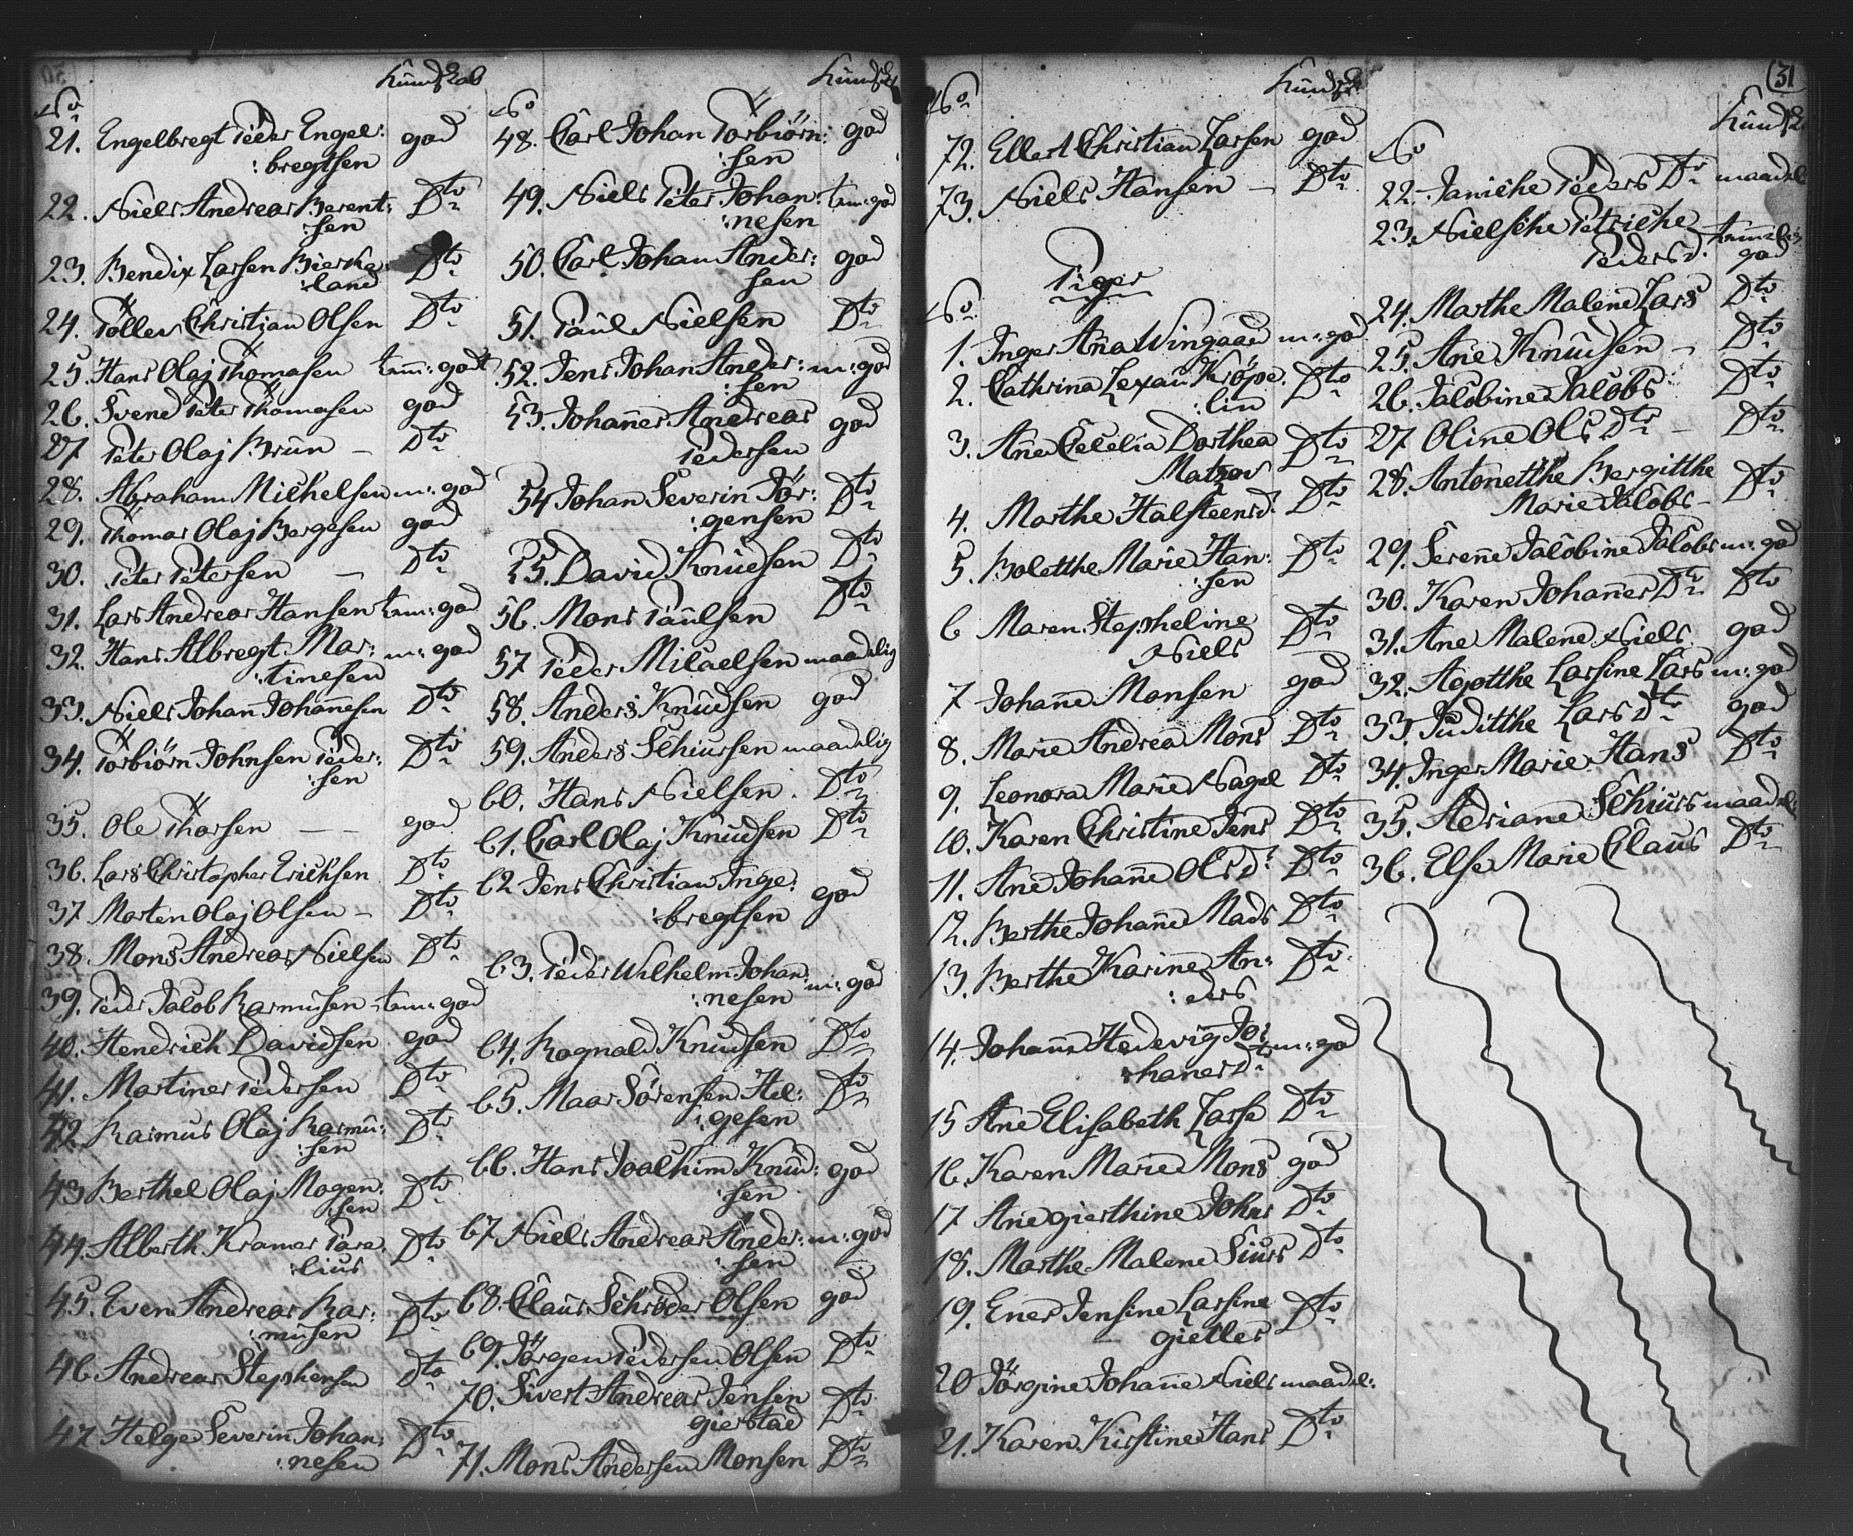 Kundskab
No
21. Engelbregt Peder Engel: god
:bregtsen
22. Niels Andreas Berent: Dto
:sen
23. Bendix Larsen Bierke: Dto
:land
24. Töllev Christian Olsen Dto
25. Hans Olaj Thomasen tem: godt
26. Svend Peter Thomasen god
27 Peter Olaj Brun – Dto
28. Abraham Michelsen m: god
29. Thomas Olaj Børgesen god
30. Peter Petersen — Dto
31. Lars Andreas Hansen tem: god
32. Hans Albregt Mar: m: god
:tinesen
33. Niels Johan Johannesen Dto
34. Torbiörn Johnsen Peder: Dto
:sen
35. Ole Thorsen — — god
36. Lars Christopher Erichsen Dto
37 Morten Olaj Olsen – Dto
38. Mons Andreas Nielsen Dto
39. Peder Jacob Rasmusen tem: god
40. Hendrich Davidsen god
41. Martines Pedersen Dto
42 Rasmus Olaj Rasmu: Dto
:sen
43 Berthel Olaj Mogen: Dto
:sen
44. Alberth Kramer Pare: Dto
:lius
45. Even Andreas Ras: Dto
:musen
46 Andreas Stephensen Dto
47 Helge Severin Johan: Dto
:nesen
Kundsk
No
48. Carl Johan Torbiörn: god
:sen
49. Niels Peter Johan: tem: god
:nesen
50. Carl Johan Ander: god
sen
51. Paul Nielsen Dto
52. Jens Johan Ander: m: god
:sen
53. Johannes Andreas god
Pedersen
54 Johan Severin Jör: Dto
:gensen
55. David Knudsen Dto
56. Mons Paulsen Dto
57 Peder Micaelsen maadelig
58. Anders Knudsen god
59. Anders Schiursen maadelig
60. Hans Nielsen Dto
61. Carl Olaj Knudsen Dto
62 Jens Christian Inge: god
:bregtsen
63. Peder Wilhelm Johan m: god
:nesen
64. Rognald Knudsen Dto
65. Maas Sörensen Hel: Dto
:gesen
66. Hans Joachim Knud: god
:sen
67 Niels Andreas Ander: m: god
:sen
68. Claus Schrøder Olsen god
69. Jörgen Pedersen Olsen Dto
70. Sivert Andreas Jensen
gierstad Dto
71. Mons Andersen Monsen Dto
31
No Kundsk
72. Ellert Christian Larsen god
73. Niels Hansen – Dto
Piger
No
1. Inger Ana Wingaard m: god
2. Cathrina Lexau Kröpe: Dto
:lin
3. Ane Cecelia Dorthea Dto
Matzov
4. Marthe Halsteensd. Dto
5. Bolethe Marie Han: Dto
:sen
6 Maren Stepheline Dto
Niels
7 Johanne Monsen god
8. Marie Andrea Mons Dto
9. Leonora Marie Nagel Dto
10. Karen Christine Jens Dto
11. Ane Johanne Ols D. Dto
12. Berthe Johanne Mads Dto
13. Berthe Karine An: Dto
:ders
14. Johanne Hedevig Jo: m: god
:hanes D.
15 Ane Elisabeth Larse Dto
16. Karen Marie Mons god
17 Ane gierthine Johns Dto
18. Marthe Malene Siurs Dto
19. Enes Jensine Larsine Dto
gielles
20 Jörgine Johanne Niels maadel:
21. Karen Kirstine Hans Dto
Kundsk
No
22. Joniche Peders Dtr maadel
23. Nielsche Petriche
Pedersd. temelig god
24. Marthe Malene Lars Dto
25. Ane Knudsen – Dto
26. Jacobine Jacobs Dto
27 Oline Ols Dtr – Dto
28. Antonetthe Bergitthe Dto
Marie Jacobs –
29. Serene Jacobine Jacobs m: god
30. Karen Johannes Dtr Dto
31. Ane Malene Niels god
32. Agotthe Larsine Lars m: god
33. Juditthe Lars Dtr god
34. Inger Marie Hans Dto
35. Adriane Schiurs maadel:
36. Else Marie Claus Dto